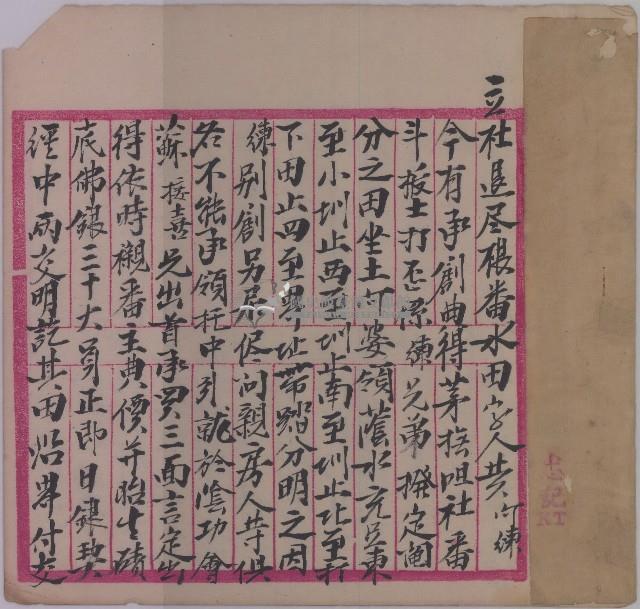 立杜退尽根番水田字人共阿練
今有承創曲得茅撫咀社番
斗板土打歪係練兄弟撥定鬮
分之田坐土竹婆領蔭水充足東
至小圳止西至圳止南至圳止北至打
下田止四至界址帶踏分明之因
練别創另居侭问親房人等俱
各不能承領托中引就於陰功會
蘇接喜兄出首承買三面言定出
得依時襯番主典價并貽生磧
底佛銀三十大員正即日銀契
經中両交明訖其田沿界付交